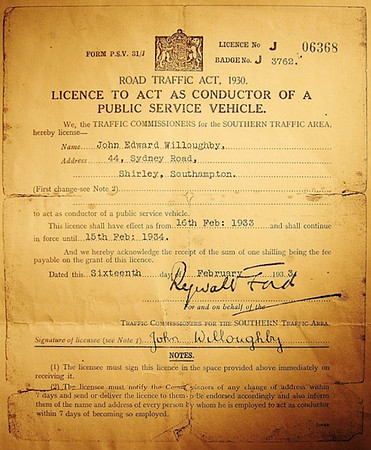 FORM P.S.V. 31/J
LICENCE No J 06368
BADGE No. J 3762.
ROAD TRAFFIC ACT, 1930.
LICENCE TO ACT AS CONDUCTOR OF A
PUBLIC SERVICE VEHICLE.
We, the TRAFFIC COMMISSIONERS for the SOUTHERN TRAFFIC AREA,
hereby license—
Name John Edward Willoughby,
Address 44, Sydney Road,
Shirley, Southampton.
(First change-see Note 2)
to act as conductor of a public service vehicle.
This licence shall have effect as from 16th Feb: 1933 and shall continue
in force until 15th Feb: 1934.
And we hereby acknowledge the receipt of the sum of one shilling being the fee
payable on the grant of this licence.
Dated this Sixteenth day of February 1933
Reginald Ford
For and on behalf of the
TRAFFIC COMMISSIONERS FOR THE SOUTHERN TRAFFIC AREA.
Signature of licensee (see Note 1) John Willoughby
NOTES.
(1) The licensee must sign this licence in the space provided above immediately on
receiving it.
(2) The licensee must notify the Commissioners of any change of address within
7 days and send or deliver the licence to them to be endorsed accordingly and also inform
them of the name and address of every person by whom he is employed to act as conductor
within 7 days of becoming so employed.